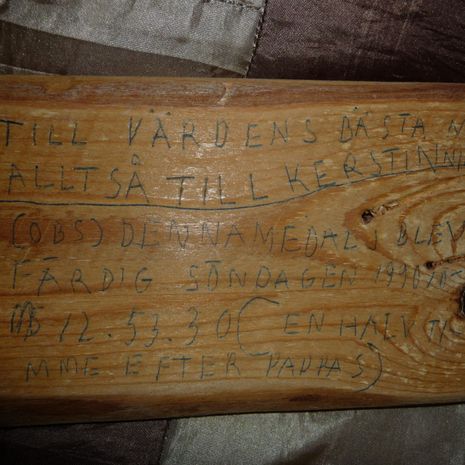 TILL VÄRDENS BÄSTA
ALLTSÅ TILL KERSTINN
(OBS) DENNA MEDALJ BLEV
FÄRDIG SÖNDAGEN 1990
12.53.30 (EN HALV TI
MME EFTER PAPPAS)